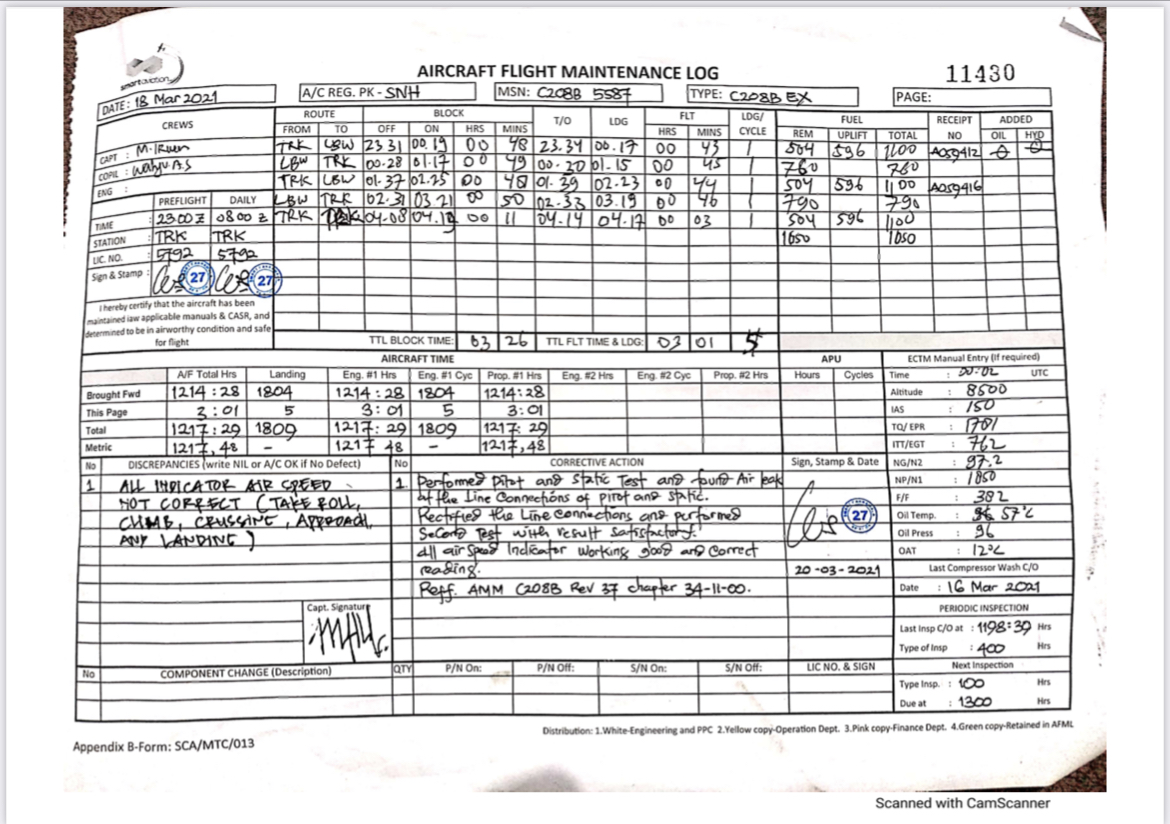 smart aviation
AIRCRAFT FLIGHT MAINTENANCE LOG
11430
DATE: 18 Mar 2021
A/C REG. PK - SNH
MSN: C208B 5587
TYPE: C208B EX
PAGE:
CREWS ROUTE BLOCK T/O LDG FLT LDG/CYCLE FUEL RECEIPT NO ADDED
FROM TO OFF ON HRS MINS HRS MINS REM UPLIFT TOTAL OIL HYD
CAPT :
COPIL :
ENG :
TRK LBW 23.31 00.19 00 48 23.34 00.17 00 43 1 504 596 1100 A059412
LBW TRK 00.28 01.17 00 49 00.20 01.15 00 45 1 760 760
TRK LBW 01.37 02.25 00 48 01.39 02.23 00 44 1 504 596 1100 A059416
LBW TRK 02.31 03.21 00 50 02.33 03.19 00 46 1 790 790
TRK 04.08 04.19 00 11 04.14 04.17 00 03 1 504 596 1100
1050 1050
PREFLIGHT DAILY
TIME : 2300 Z 0800 Z
STATION : TRK TRK
LIC. NO. : 5792 5792
Sign & Stamp : 27 27
I hereby certify that the aircraft has been
maintained iaw applicable manuals & CASR, and
determined to be in airworthy condition and safe
for flight
TTL BLOCK TIME: 03 26 TTL FLT TIME & LDG: 03 01 5
AIRCRAFT TIME APU
A/F Total Hrs Landing Eng. #1 Hrs Eng. #1 Cyc Prop. #1 Hrs Eng. #2 Hrs Eng. #2 Cyc Prop. #2 Hrs Hours Cycles
Brought Fwd 1214:28 1804 1214:28 1804 1214:28
This Page 3:01 5 3:01 5 3:01
Total 1217:29 1809 1217:29 1809 1217:29
Metric 1217,48 - 1217,48 - 1217,48
ECTM Manual Entry (If required)
Time : 00:02 UTC
Altitude : 8500
IAS : 150
TQ/ EPR : 1701
ITT/EGT : 762
NG/N2 : 97.2
NP/N1 : 1850
F/F : 382
Oil Temp. : 57°C
Oil Press : 96
OAT : 12°C
Last Compressor Wash C/O
Date : 16 Mar 2021
PERIODIC INSPECTION
Last Insp C/O at : 1198:39 Hrs
Type of Insp : 400 Hrs
Next Inspection
Type Insp. : 100 Hrs
Due at : 1300 Hrs
No DISCREPANCIES (write NIL or A/C OK if No Defect)
1 ALL INDICATOR AIR SPEED
NOT CORRECT (TAKE ROLL,
CLIMB, CRUSSING, APPROACH,
ANY LANDING)
Capt. Signature
No CORRECTIVE ACTION
1. Performed Pitot and Static Test and found Air leak
at the Line Connections of pitot and static.
Rectified the Line connections and performed
Second Test with result satisfactory.
all air speed Indicator working good and correct
reading.
Reff. AMM C208B Rev 37 chapter 34-11-00.
Sign, Stamp & Date
27
20-03-2021
No COMPONENT CHANGE (Description) QTY P/N On: P/N Off: S/N On: S/N Off: LIC NO. & SIGN
Distribution: 1.White-Engineering and PPC 2.Yellow copy-Operation Dept. 3.Pink copy-Finance Dept. 4.Green copy-Retained in AFML
Appendix B-Form: SCA/MTC/013
Scanned with CamScanner